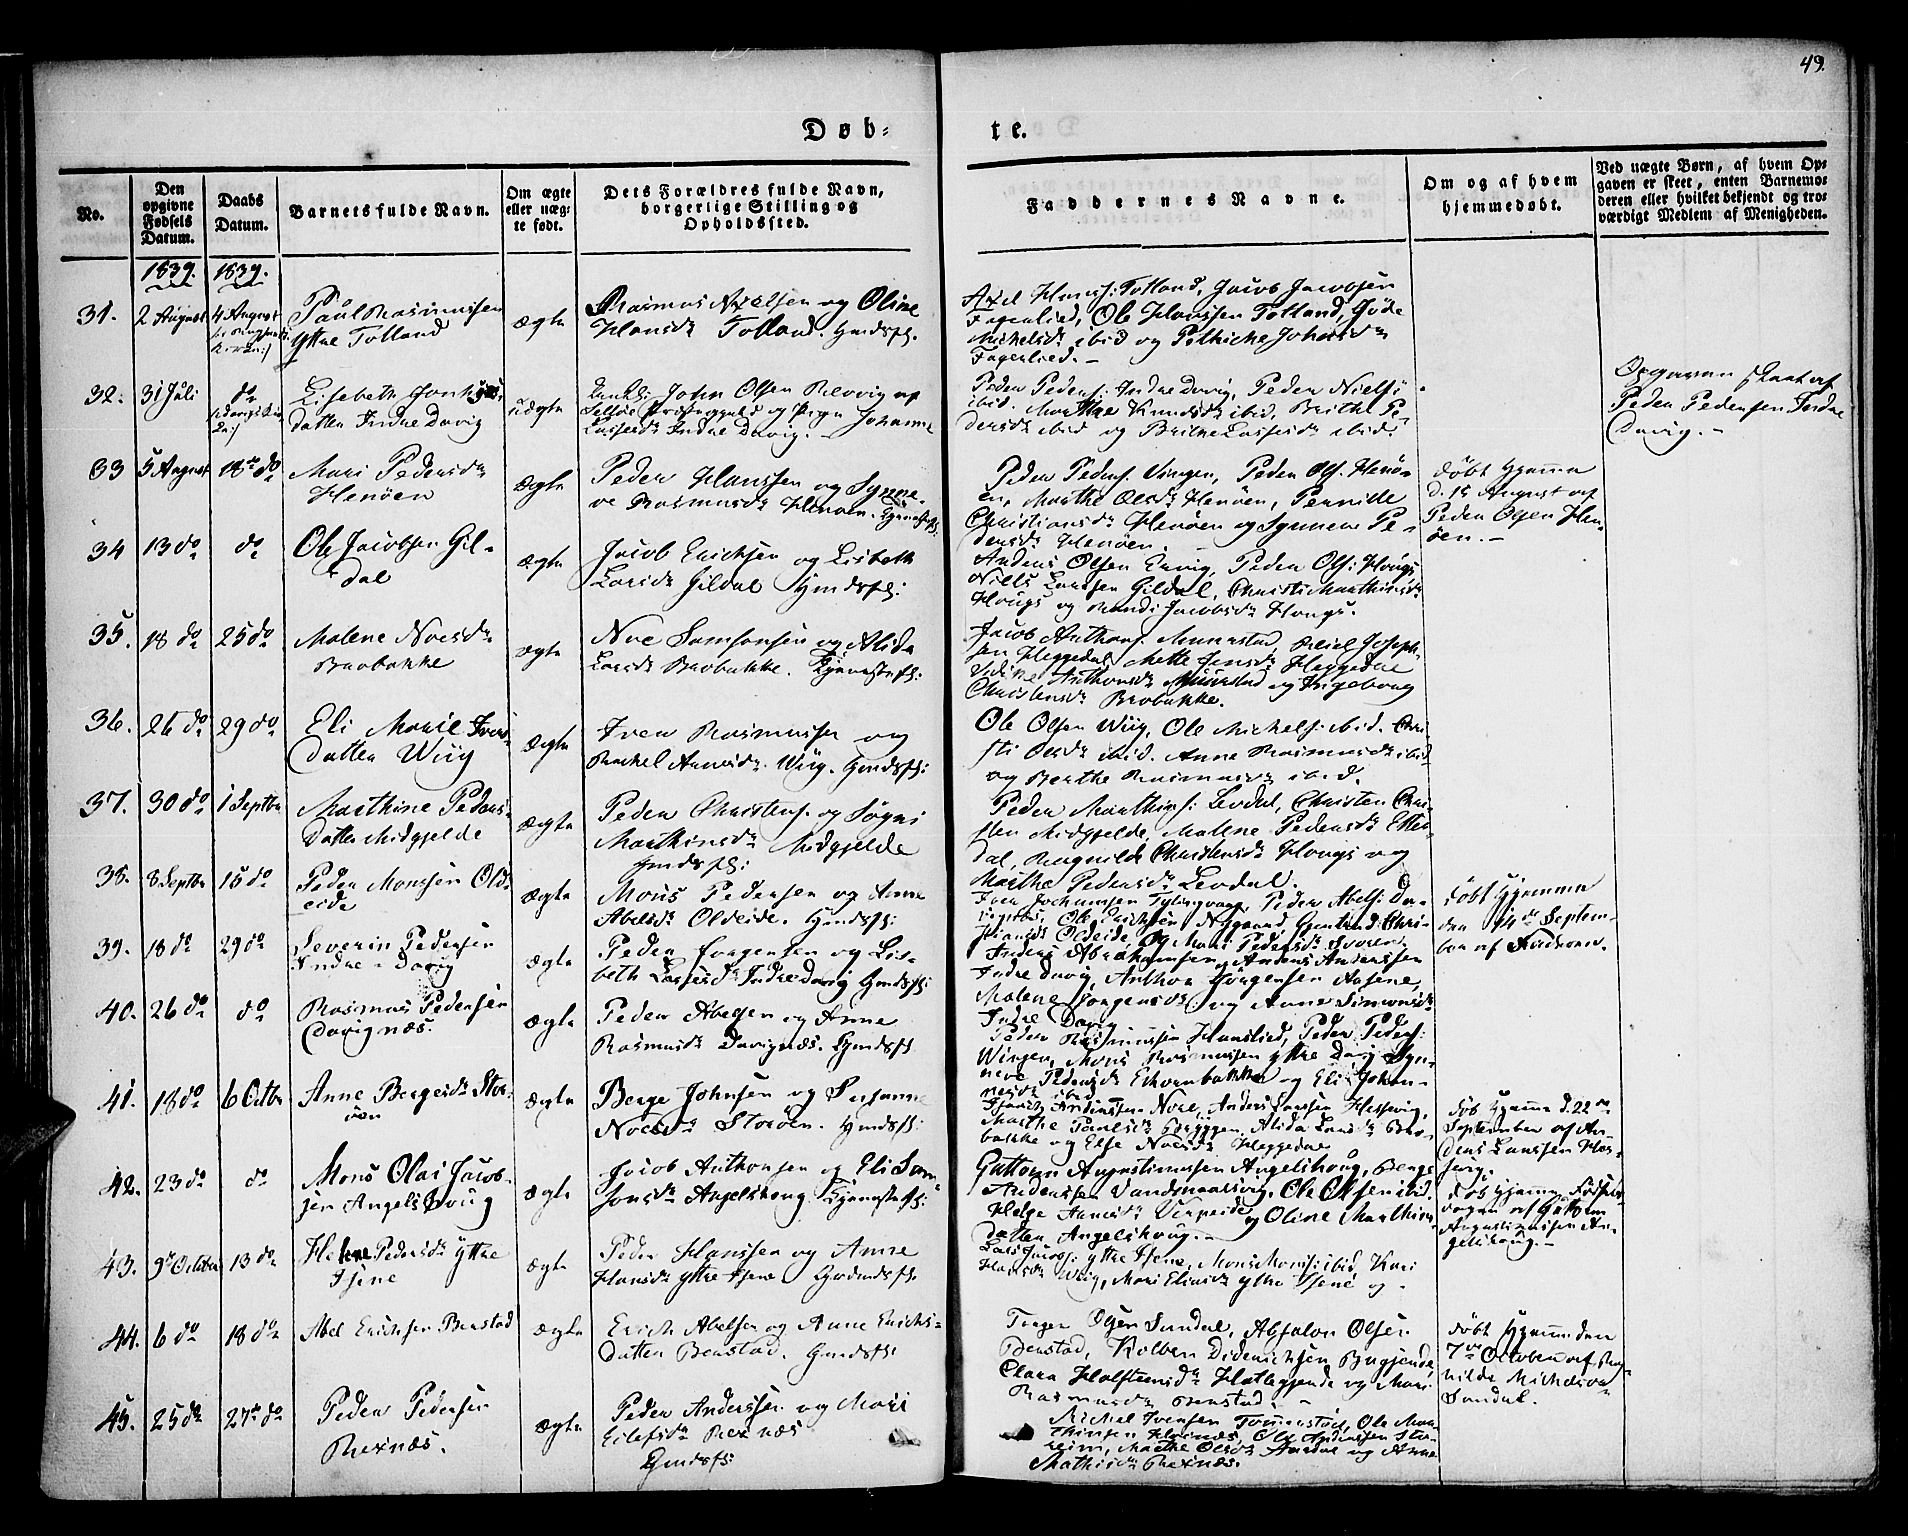 49.
Døb-
te.
No.
Den opgivne Fødsels Datum.
Daabs Datum.
Barnets fulde Navn.
Om ægte eller uægte født.
Dets Forældres fulde Navn, borgerlige Stilling og Opholdssted.
Faddernes Navne.
Om og af hvem hjemmedøbt.
Ved uægte Børn, af hvem Opgaven er skeet, enten Barnemoderen eller hvilket bekjendt og troværdigt Medlem af Menigheden.
1839. 1839.
31. 2 August 4 August
Paul Rasmussen
Ytre Totland
ægte
Rasmus Nielsen og Oline
Hansdr Totland. Gmdsfl.
Axel Hanss: Totland, Jacob Jacobsen
Fagerlied, Ole Hanssen Totland,
Michelsdr ibid og Johansdr
Fagerlied.-
32. 31 Juli do
Lisebeth Johns
datter Indre Davig
uægte
John Olsen Revvig af
Selløe Præstegjeld og Pige Johanne
Lassesdr Indre Davig.-
Peder Peders: Indre Davig, Peder Niels:
ibid. Marthe Knudsdr ibid, Brithe Pe-
dersdr ibid og Brithe Lassesdr ibid.
Opgaven skeet af
Peder Pedersen Indre
Davig.-
33 5 August 18de do
Mari Pedersdr
Henøen
ægte
Peder Hanssen og Synne-
ve Rasmusdr Henøen.
Peder Peders: Vingen, Peder Ols: Henø-
en, Marthe Olsdr Henøen, Pernille
Christiansdr Henøen og Synneve Pe-
dersdr Henøen.
Døbt hjemme
d. 15 August af
Peder Olsen Hen-
øen.-
34 13 do do
Ole Jacobsen Gil-
dal
ægte
Jacob Erichsen og Lisbeth
Larsdr Gildal Gmdsfl:
Anders Olsen Ervig, Peder Ols: Hougs
Nills Larssen Gildal, Christi Marthinsdr
Hougs og Randi Jacobsdr Hougs.
35. 18 do 25 do
Malene Noesdr
Brobakke
ægte
Noe Samsonsen og Alida
Larsdr Brobakke.
Jacob Anthons: Munestad, Joseph-
sen Heggedal, Mette Jensdr Heggedal
Anthonsdr Munestad og Ingeborg
Christensdr Brobakke.
36. 26 do 29 do
Eli Marie Ivers-
Datter Wiig
ægte
Iver Rasmussen og
Rachel Aanesdr Wiig. Gmdsfl:
Ole Olsen Wiig, Ole Michels: ibid. Chri-
sti Olsdr ibid. Anne Rasmusdr ibid
og Berthe Rasmusdr ibid.
37. 30 do 1 Septbr
Marthine Peders-
Datter Midgjelde
ægte
Peder Christens: og Søgni
Marthinsdr Midgjelde
Gmdsfl:
Peder Marthins: Levdal, Christen Chri-
sten Midgjelde, Malene Pedersdr Etter-
dal, Ragnilde Christensdr Hougs og
Marthe Pedersdr Levdal.
38. 8 Septbr 15 do
Peder Monsen Old-
eide
ægte
Mons Pedersen og Anne
Abelsdr Oldeide. Gmdsfl:
Iver Jochumsen, Peder Abels:
Ole Erichsen Nygaard, Gjertrud Chri-
stiansdr Oldeide, og Mari Pedersdr
Døbt hjemme
den 14de Septem-
ber af
39. 18 do 29 do
Severin Pedersen
Indre-Davig
ægte
Peder Jørgensen og Lis-
beth Lassesdr Indre Davig Gmdsfl:
Anders Abrahamsen, Anders Anderssen
Indre Davig, Anthon Jørgensen Aasene,
Malene Jørgensdr og Anne Simonsdr
Indre Davig
40. 26 do do
Rasmus Pedersen
Davignæs.
ægte
Peder Abelsen og Anne
Rasmusdr Davignæs. Gmdsfl.
Peder Rasmussen Hunslied, Peder Peders:
Wingen, Mons Rasmussen ytre Davig Syn-
neve Pedersdr Echornbakke og Eli Johan-
nesdr ibid
41. 18 do 6 Octbr
Anne Bergesdr Stor-
øen
ægte
Berge Johnsen og Susanne
Noesdr Storøen. Gmdsfl:
Anderssen Nore, Anders Larssen Hessvig,
Marthe Paulsdr, Alida Larsdr Bro-
bakke og Else Noesdr Heggedal
Døb hjemme d. 22de
September af An-
ders Larssen Hes-
svig.
42. 23 do do
Mons Olai Jacob-
sen Angelshoug
ægte
Jacob Anthonsen og Eli Sam-
sonsdr Angelshoug.
Guttorm Augustinussen Angelshoug, Berge
Anderssen Vandmaarsvig. Ole Olsen ibid.
Helge Aanesdr og Oline Marthins-
datter Angelshoug.-
Døb hjemme Fødsels-
dagen af Guttorm
Augustinussen An-
gelshoug.-
43. 9de October 13 do
Helene Pedersdr Ytre
Isene
ægte
Peder Hanssen og Anne
Hansdr Ytre Isene
Lars Jacobs: ytre Isene, Mons Mons: ibid Kari
Hansdr Wiig, Mari Eliasdr ytre Isene og -
44. 6 do 18 do
Abel Erichsen Berstad
ægte
Erich Abelsen og Anne Erichs-
Datter Berstad. Gmdsfl:
Olsen Sundal, Absalon Olsen
Berstad, Kolben Diderichsen
Clara Halfstensdr og Mari
Rasmusdr Berstad.-
Døbt hjemme den
7de October af Rag-
nilde Michelsdr
Sundal.
45. 25 do 27de do
Peder Pedersen
Rexnæs.
ægte
Peder Anderssen og Mari
Eilefsdr Rexnæs
Gmdsfl:
Michel Iversen, Ole Mar-
thinsen, Ole Anderssen Stor-
heim, Marthe Olsdr og Anne
Mathisdr Rexnæs.